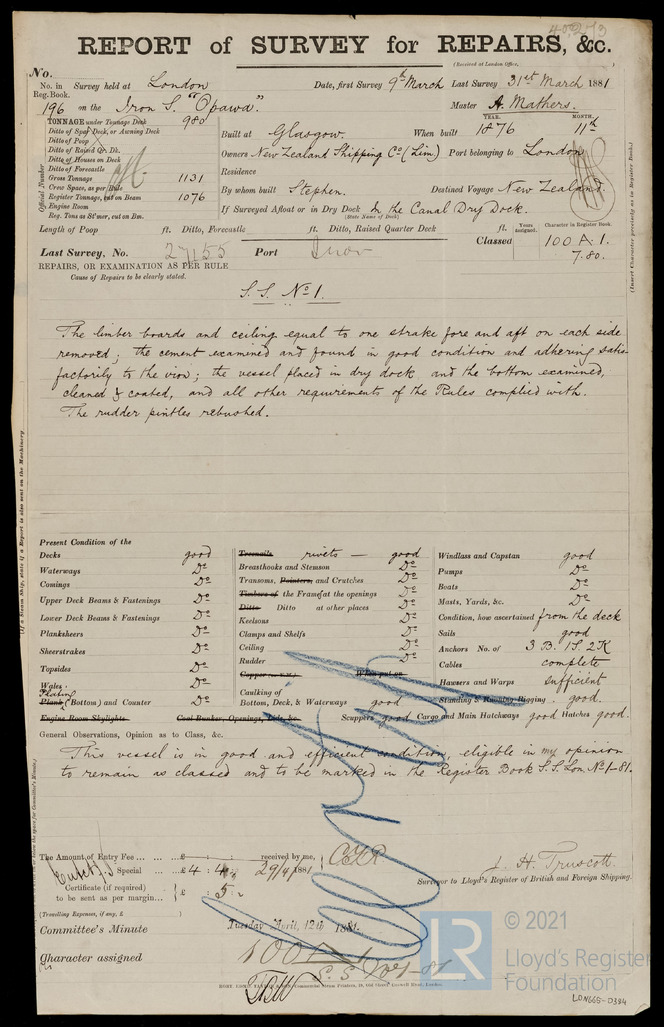 REPORT of SURVEY for REPAIRS, &c.
(Received at London Office,
No.
No. in Reg. Book. Survey held at London Date, first Survey 9th March Last Survey 31st March 1881
196 on the Iron S. "Opawa." Master A. Mathers.
TONNAGE under Tonnage Deck 980
Ditto of Spar Deck, or Awning Deck
Ditto of Poop
Ditto of Raised Qr. Dk.
Ditto of Houses on Deck
Ditto of Forecastle
Gross Tonnage 1131
Crew Space, as per Rule
Register Tonnage, cut on Beam 1076
Engine Room
Reg. Tons as St'mer, cut on Bm.
Official Number
Built at Glasgow. When built YEAR. 1876 MONTH. 11th
Owners New Zealand Shipping Co. (Lim) Port belonging to London
Residence
By whom built Stephen. Destined Voyage New Zealand.
If Surveyed Afloat or in Dry Dock In the Canal Dry Dock.
(State Name of Dock)
Length of Poop ft. Ditto, Forecastle ft. Ditto, Raised Quarter Deck ft.
Years assigned. Character in Register Book.
Classed 100 A.1.
7.80.
(Insert Character precisely as in Register Book.)
Last Survey, No. 27155 Port
REPAIRS, OR EXAMINATION AS PER RULE
Cause of Repairs to be clearly stated.
S.S. No 1.
The limber boards and ceiling equal to one strake fore and aft on each side
removed; the cement examined and found in good condition and adhering satis-
factorily to the iron; the vessel placed in dry dock and the bottom examined,
cleaned & coated, and all other requirements of the Rules complied with.
The rudder pintles rebushed.
(If a Steam Ship, state if a Report is also sent on the Machinery
Present Condition of the
Decks good
Waterways Do
Comings Do
Upper Deck Beams & Fastenings Do
Lower Deck Beams & Fastenings Do
Planksheers Do
Sheerstrakes Do
Topsides Do
Wales Do
Plating
Plank (Bottom) and Counter Do
Engine Room Skylights Coal Bunker, Openings, Lids, &c.
Treenails rivets — good
Breasthooks and Stemson Do
Transoms, Pointers, and Crutches Do
Timbers of the Frames at the openings Do
Ditto Ditto at other places Do
Keelsons Do
Clamps and Shelfs Do
Ceiling Do
Rudder Do
When put on
Caulking of
Bottom, Deck, & Waterways good
Scuppers good Cargo and Main Hatchways good Hatches good.
Windlass and Capstan good
Pumps Do
Boats Do
Masts, Yards, &c. Do
Condition, how ascertained from the deck
Sails good
Anchors No. of 3 B. 1 S. 2 K
Cables complete
Hawsers and Warps sufficient
Standing & Running Rigging good.
General Observations, Opinion as to Class, &c.
This vessel is in good and efficient condition, eligible in my opinion
to remain as classed and to be marked in the Register Book S.S. Lon. No 1-81.
The Amount of Entry Fee ... ... £ : : received by me,
Special ... £ 4 : 4 : 29/4/1881
Certificate (if required)
to be sent as per margin... £ : 5 :
(Travelling Expenses, if any, £
J. H. Truscott.
Surveyor to Lloyd's Register of British and Foreign Shipping.
Committee's Minute Tuesday April, 12th 1881.
Character assigned 100 A 1
S.S. No 1-81
LR
© 2021
Lloyd's Register
Foundation
LON665-0394